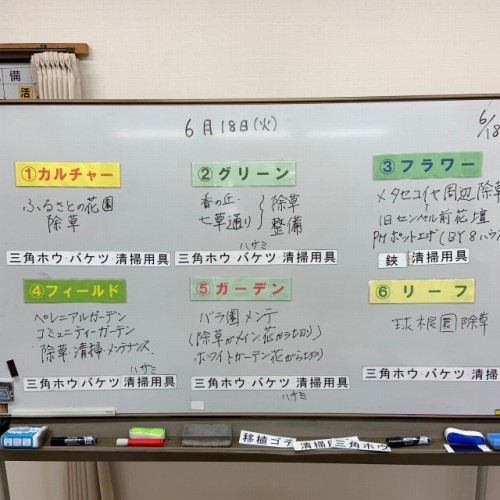 備
活
6月18日(火)
6/18
①カルチャー
ふるさとの花園
除草
三角ホウ バケツ 清掃用具
②グリーン
香の丘
七草通り
除草
整備
ハサミ
三角ホウ バケツ 清掃用具
③フラワー
メタセコイヤ周辺除草
旧センペル前花壇
PHポット上げ(BY8ハウス
鋏 清掃用具
④フィールド
ペレニアルガーデン
コミュニティーガーデン
除草・清掃・メンテナンス
ハサミ
三角ホウ バケツ 清掃用具
⑤ガーデン
バラ園メンテ
(除草がメイン、花がら切り)
ホワイトガーデン花がら切り
三角ホウ バケツ 清掃用具
ハサミ
⑥リーフ
球根園除草
三角ホウ バケツ 清掃
移植ゴテ
清掃
三角ホウ